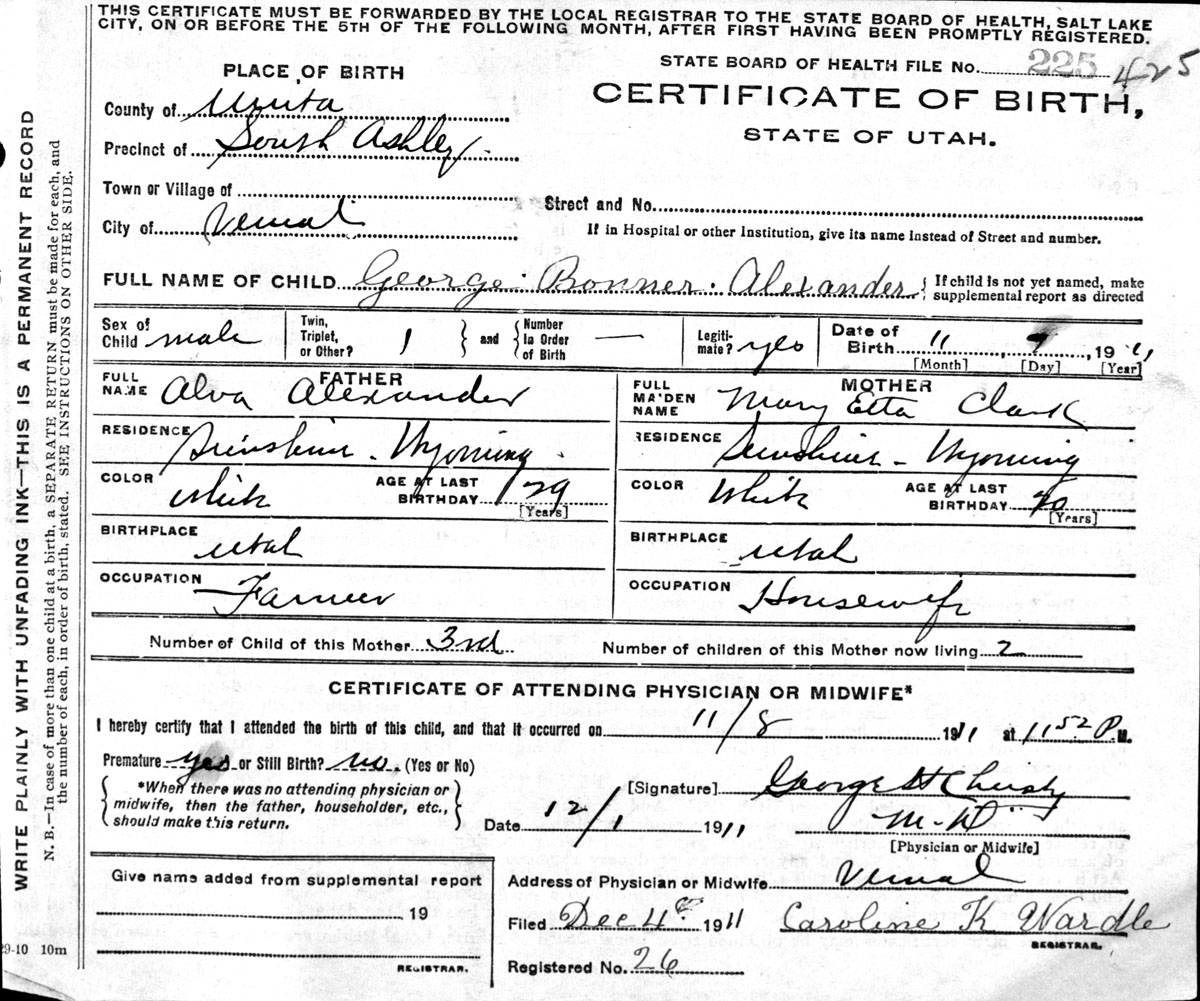 THIS CERTIFICATE MUST BE FORWARDED BY THE LOCAL REGISTRAR TO THE STATE BOARD OF HEALTH, SALT LAKE
CITY, ON OR BEFORE THE 5TH OF THE FOLLOWING MONTH, AFTER FIRST HAVING BEEN PROMPTLY REGISTERED.
WRITE PLAINLY WITH UNFADING INK—THIS IS A PERMANENT RECORD
N. B.—In case of more than one child at a birth, a SEPARATE RETURN must be made for each, and
the number of each, in order of birth, stated. SEE INSTRUCTIONS ON OTHER SIDE.
STATE BOARD OF HEALTH FILE No. 225 425
CERTIFICATE OF BIRTH,
STATE OF UTAH.
PLACE OF BIRTH
County of Uinta
Precinct of South Ashley.
Town or Village of
Street and No.
City of Vernal
If in Hospital or other Institution, give its name instead of Street and number.
FULL NAME OF CHILD George Bonner Alexander
If child is not yet named, make
supplemental report as directed
Sex of Child male
Twin, Triplet, or Other? 1
and
Number In Order of Birth —
Legitimate? yes
Date of Birth 11, , 1911
[Month] [Day] [Year]
FATHER
FULL NAME Alva Alexander
RESIDENCE Sunshine - Wyoming
COLOR White AGE AT LAST BIRTHDAY 29
[Years]
BIRTHPLACE Utah
OCCUPATION Farmer
MOTHER
FULL MAIDEN NAME Mary Etta Clark
RESIDENCE Sunshine - Wyoming
COLOR White AGE AT LAST BIRTHDAY
[Years]
BIRTHPLACE Utah
OCCUPATION Housewife
Number of Child of this Mother 3rd Number of children of this Mother now living 2
CERTIFICATE OF ATTENDING PHYSICIAN OR MIDWIFE*
I hereby certify that I attended the birth of this child, and that it occurred on 11/8 1911 at 11 52 P.M.
Premature yes or Still Birth? no. (Yes or No)
*When there was no attending physician or
midwife, then the father, householder, etc.,
should make this return.
[Signature] George H Christy
M.D
[Physician or Midwife]
Date 12/1 1911
Give name added from supplemental report
19
REGISTRAR.
Address of Physician or Midwife Vernal
Filed Dec 4 1911 Caroline K Wardle
REGISTRAR.
Registered No. 26
29-10 10m